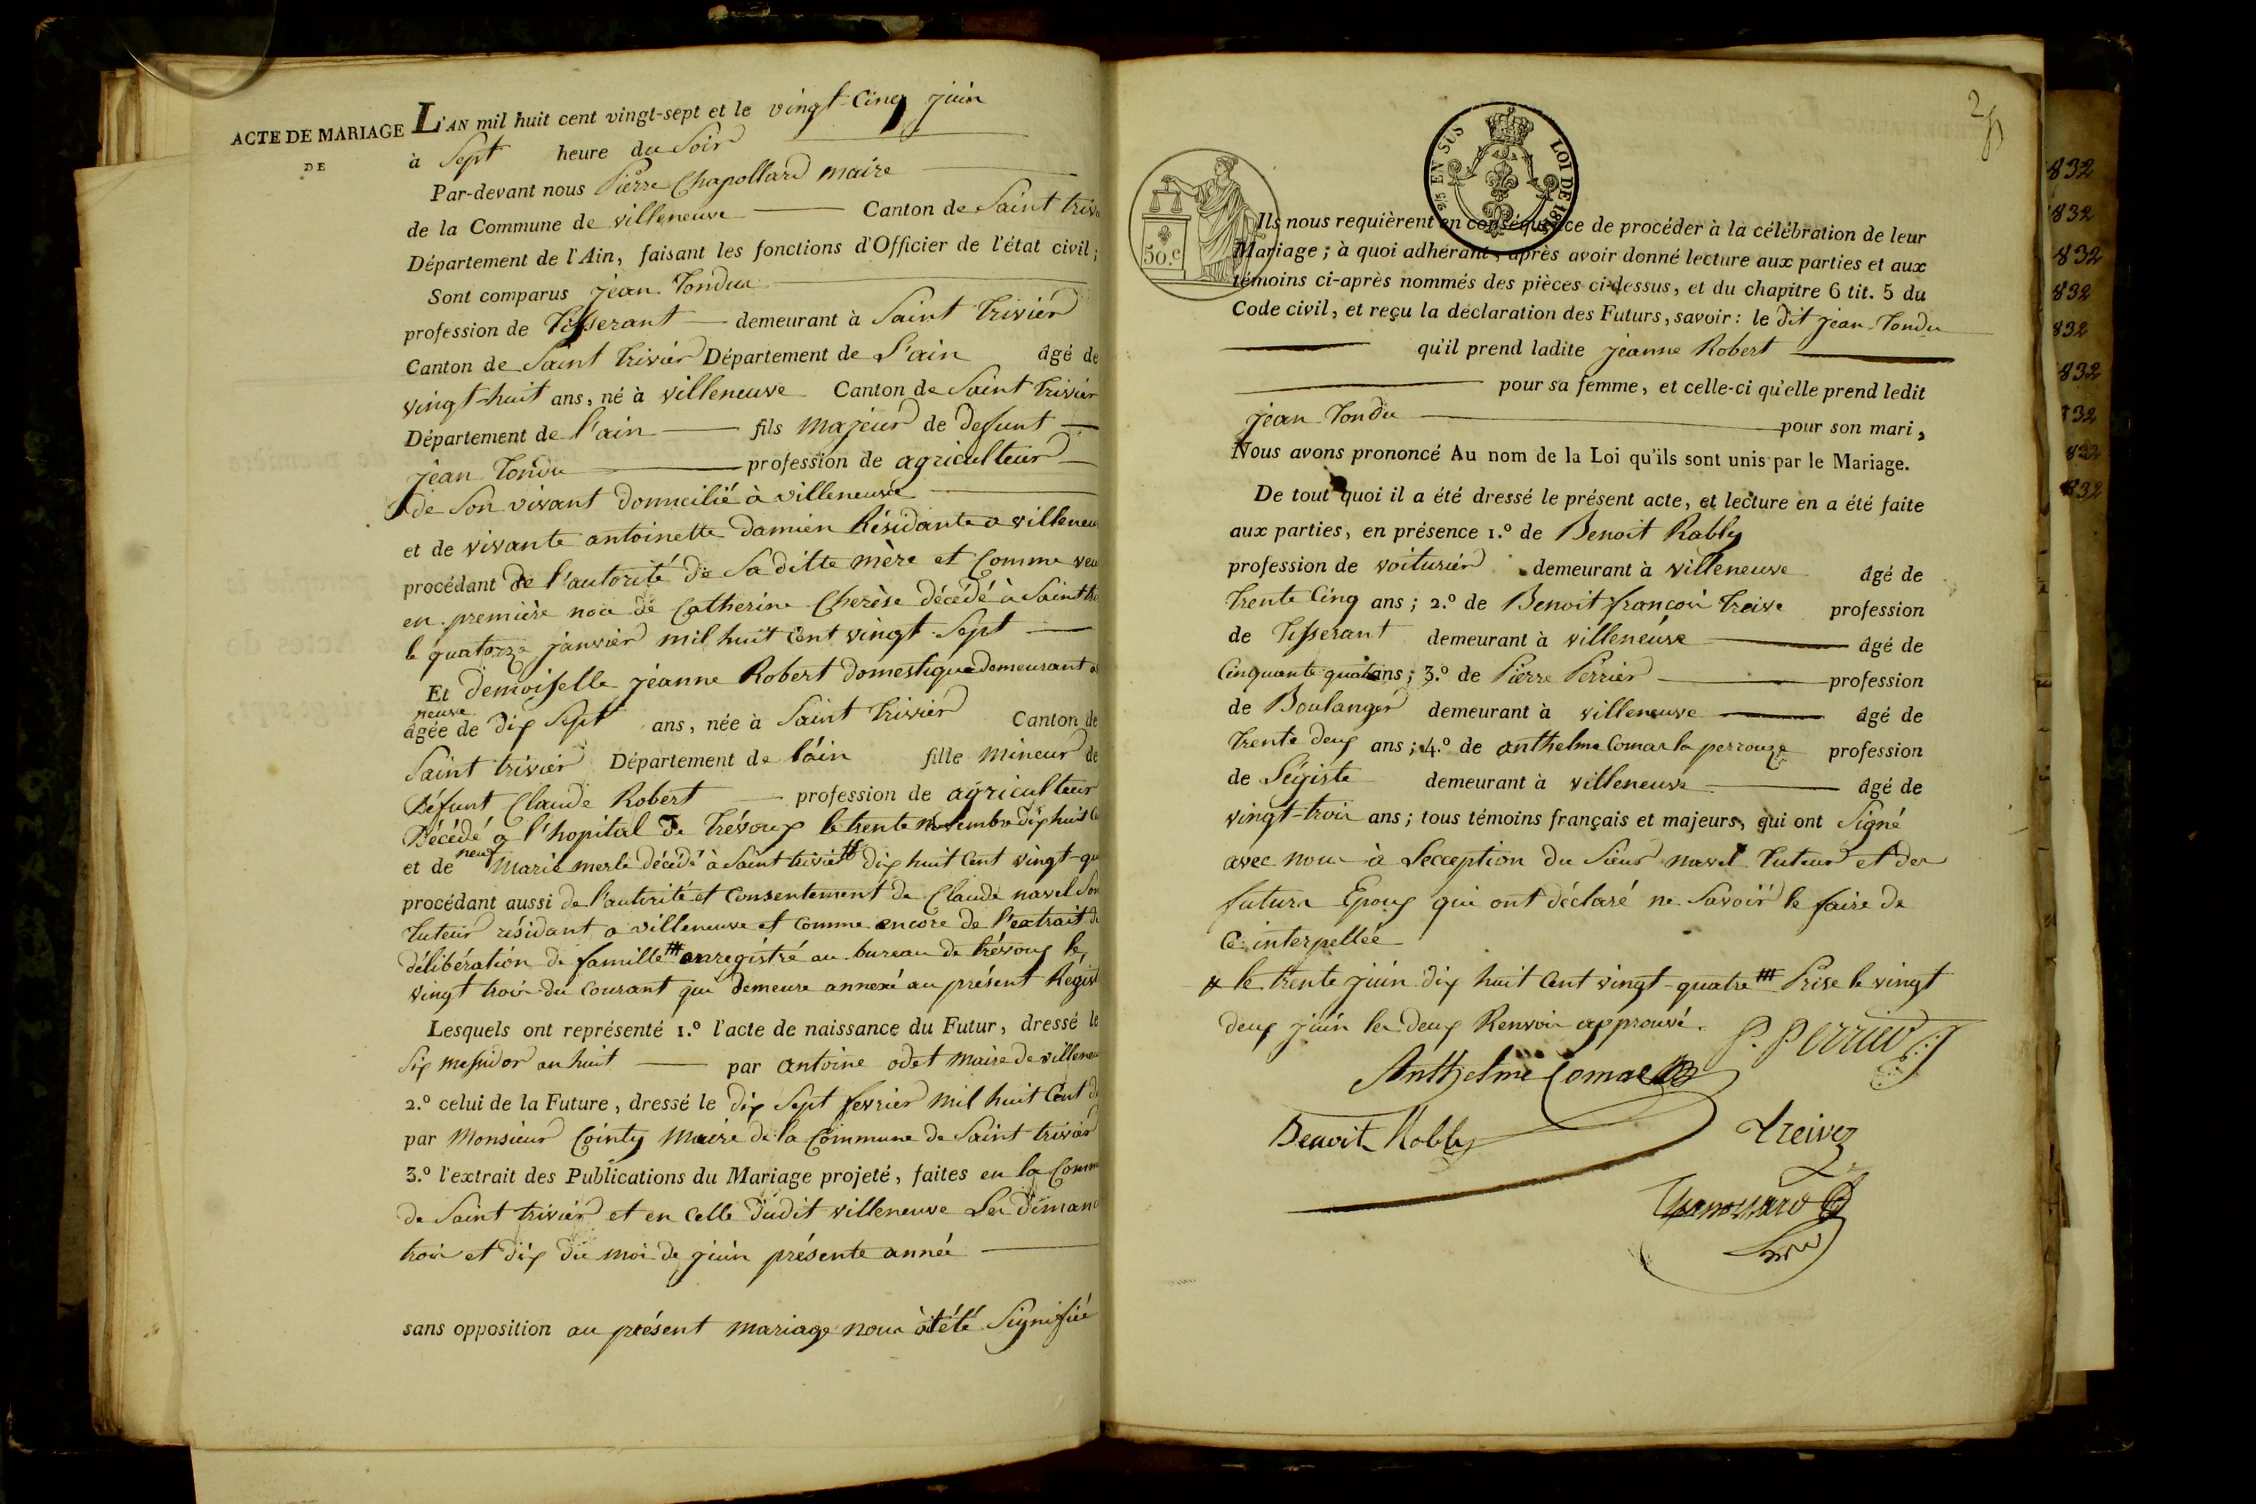 ACTE DE MARIAGE
DE
L'AN mil huit cent vingt-sept et le vingt-Cinq juin
à Sept heure du Soir
Par-devant nous Pierre Chapollard maire
de la Commune de villeneuve Canton de Saint triv
Département de l'Ain, faisant les fonctions d'Officier de l'état civil;
Sont comparus jean Tondu
profession de Tisserant demeurant à Saint Trivier
Canton de Saint Trivier Département de L'ain âgé de
vingt-huit ans, né à villeneuve Canton de Saint Trivier
Département de l'ain fils majeur de defunt
jean Tondu profession de agriculteur
de Son vivant domicilié à villeneuve
et de vivante antoinette damien Résidante a villeneu
procédant de l'autorité de Saditte mère et Comme veu
en première noce de Catherine Cherèse décédé à Saint tri
le quatorze janvier mil huit Cent vingt-Sept
Et demoiselle jéanne Robert domestique demeurant a
neuve
âgée de dix Sept ans, née à Saint Trivier Canton de
Saint trivier Département de l'ain fille mineur de
Défunt Claude Robert profession de agriculteur
Décédé a l'hopital de Trévoux le trente Novembre dix huit C
neuf
et de Marie merle décédé à Saint trivier # dix huit Cent vingt-qu
procédant aussi de l'autorité et Consentement de Claude navel Son
tuteur résidant a villeneuve et comme encore de l'extrait de
délibération de famille ## enregistré au bureau de trévoux le
vingt trois du Courant qui demeure annexé au présent Regist
Lesquels ont représenté 1.º l'acte de naissance du Futur, dressé le
Six messidor an huit par antoine odet maire de villeneu
2.º celui de la Future, dressé le dix Sept fevrier mil huit Cent d
par Monsieur Cointy Maire de la Commune de Saint trivier
3.º l'extrait des Publications du Mariage projeté, faites en la Comm
de Saint trivier et en Celle dudit villeneuve Les dimanc
trois et dix du moi de juin présente année
sans opposition au présent mariage nous a été Signifiée
25 EN SUS LOI DE 18
50.c
Ils nous requièrent en conséquence de procéder à la célébration de leur
Mariage; à quoi adhérant, après avoir donné lecture aux parties et aux
témoins ci-après nommés des pièces ci-dessus, et du chapitre 6 tit. 5 du
Code civil, et reçu la déclaration des Futurs, savoir: le dit jean Tondu
qu'il prend ladite jeanne Robert
pour sa femme, et celle-ci qu'elle prend ledit
jean Tondu pour son mari,
Nous avons prononcé Au nom de la Loi qu'ils sont unis par le Mariage.
De tout quoi il a été dressé le présent acte, et lecture en a été faite
aux parties, en présence 1.º de Benoit Rably
profession de voiturier demeurant à villeneuve âgé de
trente Cinq ans; 2.º de Benoit françois Treive profession
de Tisserant demeurant à villeneuve âgé de
Cinquante quatre ans; 3.º de Pierre Perrier profession
de Boulanger demeurant à villeneuve âgé de
trente deux ans; 4.º de anthelme Comar la perrouze profession
de Légiste demeurant à villeneuve âgé de
vingt-trois ans; tous témoins français et majeurs, qui ont Signé
avec nous à Lecception du Sieur navel tuteur et des
futurs Epoux qui ont déclaré ne Savoir le faire de
Ce interpellée
# le trente juin dix huit Cent vingt-quatre ## Prise le vingt
deux juin les deux Renvois approuvé.
P. Perrier
Anthelme Comar
Benoit Robly
Treivez
832
832
832
832
832
832
832
832
832